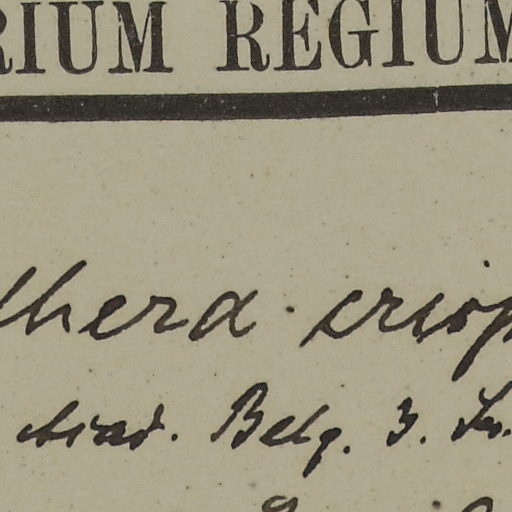 RIUM REGIUM
thera crisp
Acad. Belg. 3.